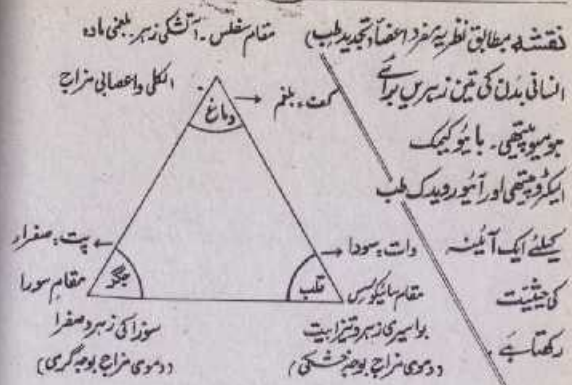 نقشہ مطابق نظریہ مفرد اعضأ (تجدید طب)
انسانی بدن کی تین زہریں برائے
ہومیوپیتھی۔ بائیو کیمک
الیکٹروپیتھی اور آئیورویدک طب
کیلئے ایک آئینہ
کی حیثیت
رکھتا ہے۔
مقام سفلس۔ آتشکی زہر۔ بلغمی مادہ
الکلی واعصابی مزاج
دماغ
کف، بلغم
پت، صفرا
وات، سودا
جگر
قلب
مقام سورا
سوزاکی زہر و صفرا
(دموی مزاج بوجہ گرمی)
مقام سائیکوسس
بواسیری زہر و تیزابیت
(دموی مزاج بوجہ خشکی)